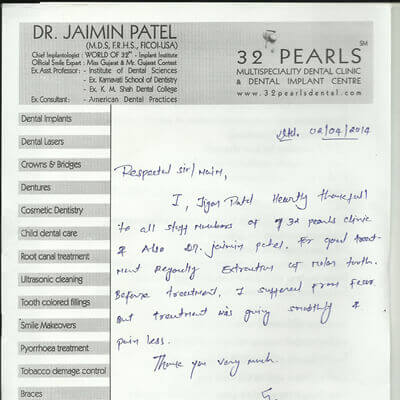 DR. JAIMIN PATEL
(M.D.S, F.R.H.S., FICOI-USA)
Chief Implantologist : WORLD OF 32nd - Implant Institute
Official Smile Expert : Miss Gujarat & Mr. Gujarat Contest
Ex. Asst. Professor : - Institute of Dental Sciences
- Ex. Karnavati School of Dentistry
- Ex. K. M. Shah Dental College
Ex. Consultant : - American Dental Practices
32 PEARLS SM
MULTISPECIALITY DENTAL CLINIC
& DENTAL IMPLANT CENTRE
www.32pearlsdental.com
Dental Implants
Dental Lasers
Crowns & Bridges
Dentures
Cosmetic Dentistry
Child dental care
Root canal treatment
Ultrasonic cleaning
Tooth colored fillings
Smile Makeovers
Pyorrhoea treatment
Tobacco demage control
Braces
02/04/2014
Respected Sir/Maim,
I, Jigar Patel Heartly thankfull
to all staff members of 32 pearls clinic
& Also Dr. jaimin patel. For good treat-
ment Regarding Extraction of molar tooth.
Before treatment, I suffered from fever.
But treatment was going smoothly &
pain less.
Thank you very much.